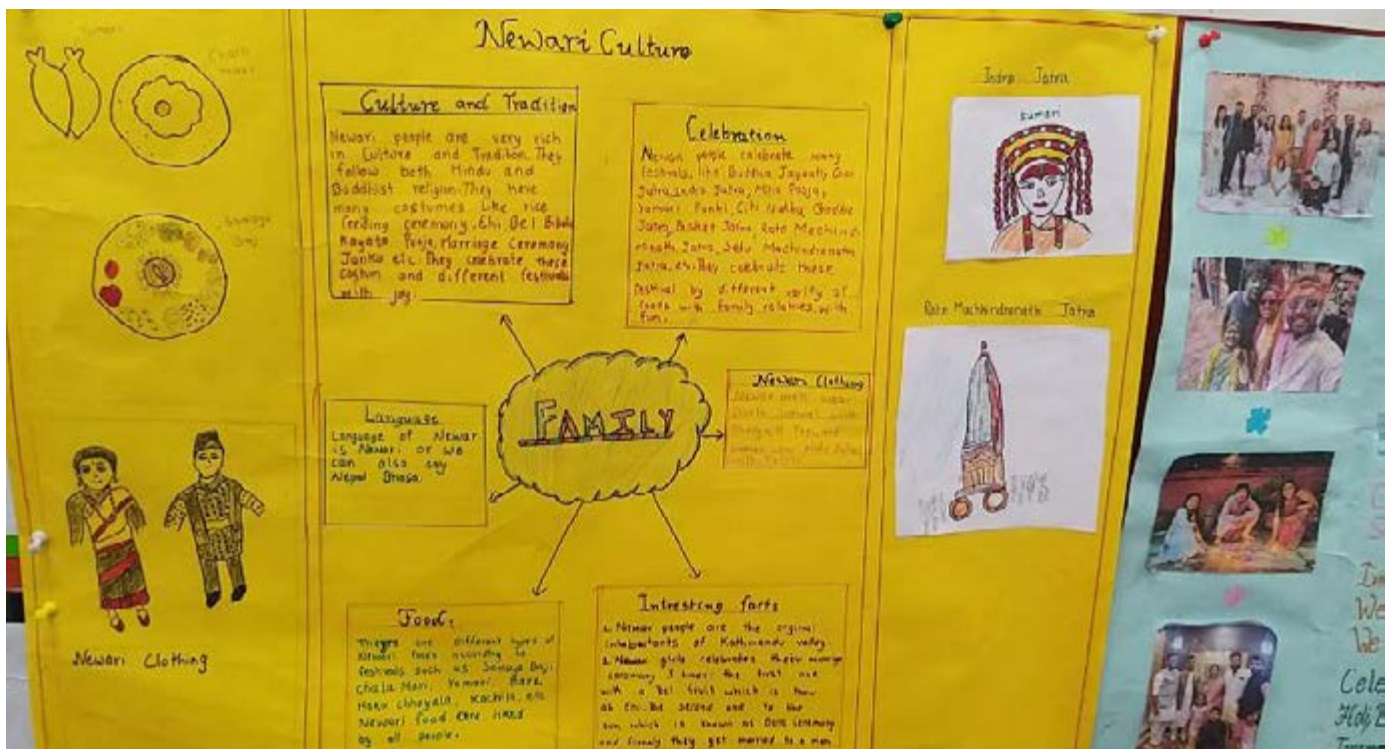 Newari Culture
Yomari
Chatamari
Samaya
Baji
Newari Clothing
Culture and Tradition
Newari people are very rich
in Culture and Tradition. They
follow both Hindu and
Buddhist religion. They have
many costumes like rice
feeding ceremony, Ehi Bel Bibaha
Kayata Pooja, Marriage Ceremony
Janko etc. They celebrate these
costum and different festivals
with joy.
Celebration
Newari people celebrate many
festivals, like Buddha Jayanti, Gai
Jatra, Indra Jatra, Mha Pooja,
Yomari Punhi, Godhe
Jatra, Bisket Jatra, Rato Machind
ranath Jatra, Seto Machindranath
Jatra, etc. They celebrate these
festival by different verity of
foods with family relatives with
fun.
Language
Language of Newar
is Newari or we
can also say
Nepal Bhasa.
FAMILY
Newari Clothing
Newar men wear
Daura Suruwal with
women wear
Food:
There are different types of
Newari food according to
festivals such as Samaya Baji,
Chata Mari, Yomari, Bara
Haku Chhoyala, Kachila, etc
Newari food are liked
by all people.
Intresting facts
1. Newar people are the orginal
inhabitants of Kathmandu valley
2. Newar girls celebrates there marrige
ceremony 3 times the first one
with a Bel fruit which is
as Ehi. The second one to the
sun which is known as Bara ceremony
and finaly they get married to a man
Indra Jatra
kumari
Rato Machhindranath Jatra
We
We
Cele
Holi